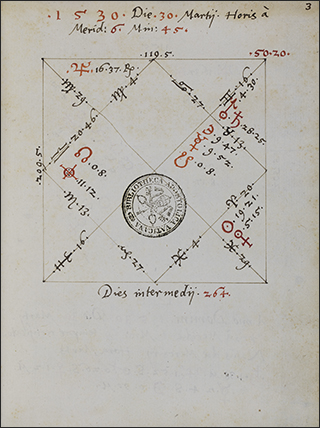 3
·1530· Die·30· Martij· Horis à
Merid: 6· Min: 45·
·119·5·
·50·20·
♃·16·37·℞
♍·29·
♌·4·
♋·27·
♊·16·
4·30·
♄
28·25·
♉·13·
9·47·
9·52·
☋·0·8·
·209·5·
♎·20·46·
☊·0·8·
⊗·11·12·
♏·13·
♈·20·
☉·19·21·
5·15·
♓·29·
♐·16·
♑·27·
♒·4·
BIBLIOTHECA APOSTOLICA VATICANA
Dies intermedij· 264·